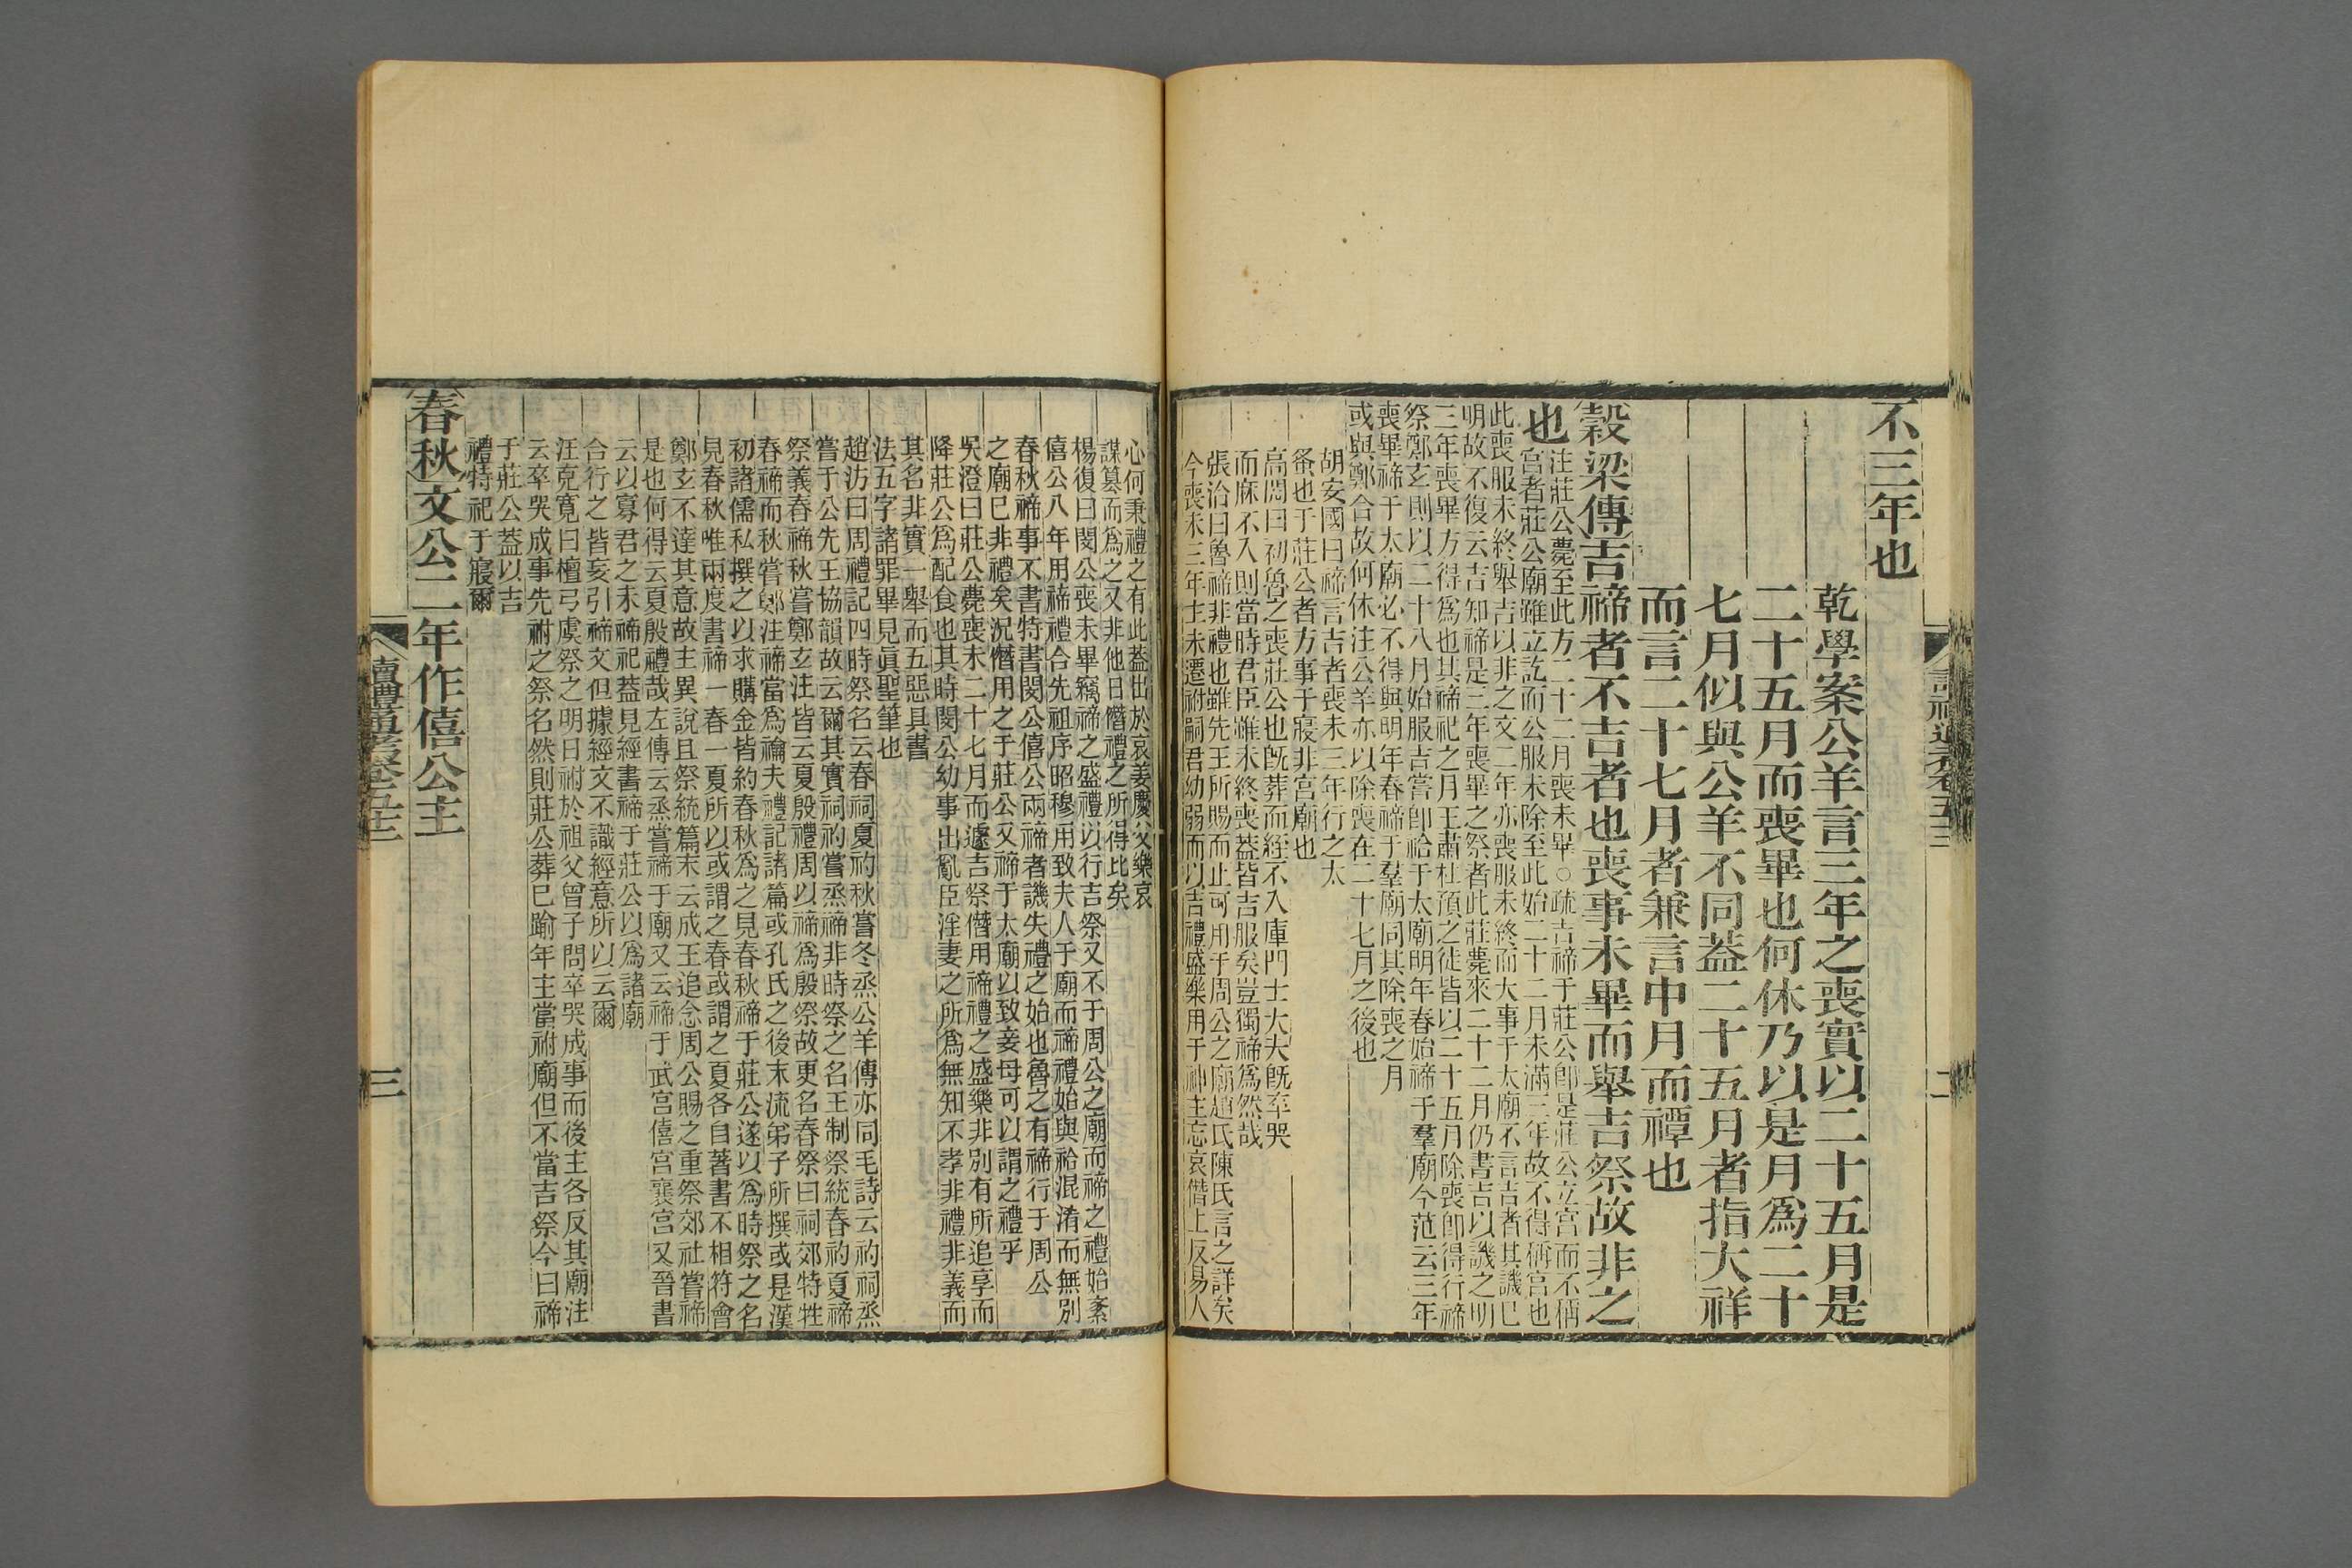 不三年也
乾學案公羊言三年之喪實以二十五月是
二十五月而喪畢也何休乃以是月爲二十
七月似與公羊不同葢二十五月者指大祥
而言二十七月者兼言中月而禫也
穀梁傳吉禘者不吉者也喪事未畢而舉吉祭故非之
也
注莊公薨至此方二十二月喪未畢○疏吉禘于莊公卽是莊公立宮而不稱
宮者莊公廟雖立訖而公服未除至此始二十二月未滿三年故不得稱宮也
此喪服未終舉吉以非之文二年亦喪服未終而大事于太廟不言吉者其譏已
明故不復云吉知禘是三年喪畢之祭者此莊薨來二十二月仍書吉以譏之明
三年喪畢方得爲也其禘祀之月王肅杜預之徒皆以二十五月除喪卽得行禘
祭鄭玄則以二十八月始服吉嘗卽祫于太廟明年春始禘于羣廟今范云三年
喪畢禘于太廟必不得與明年春禘于羣廟同其除喪之月
或與鄭合故何休注公羊亦以除喪在二十七月之後也
胡安國曰禘言吉者喪未三年行之太
蚤也于莊公者方事于寢非宮廟也
高閌曰初魯之喪莊公也旣葬而絰不入庫門士大夫旣卒哭
而麻不入則當時君臣雖未終喪葢皆吉服矣豈獨禘爲然哉
張洽曰魯禘非禮也雖先王所賜而止可用于周公之廟趙氏陳氏言之詳矣
今喪未三年主未遷祔嗣君幼弱而以吉禮盛樂用于神主忘哀僭上反易人
心何秉禮之有此葢出於哀姜慶父樂哀
謀簒而爲之又非他日僭禮之所得比矣
楊復曰閔公喪未畢竊禘之盛禮以行吉祭又不于周公之廟而禘之禮始紊
僖公八年用禘禮合先祖序昭穆用致夫人于廟而禘禮始與祫混淆而無別
春秋禘事不書特書閔公僖公兩禘者譏失禮之始也魯之有禘行于周公
之廟巳非禮矣況僭用之于莊公又禘于太廟以致妾母可以謂之禮乎
吳澄曰莊公薨喪未二十七月而遽吉祭僭用禘禮之盛樂非別有所追享而
降莊公爲配食也其時閔公幼事出亂臣淫妻之所爲無知不孝非禮非義而
其名非實一舉而五惡具書
法五字諸罪畢見眞聖筆也
趙汸曰周禮記四時祭名云春祠夏礿秋嘗冬烝公羊傳亦同毛詩云礿祠烝
嘗于公先王協韻故云爾其實祠礿嘗烝禘非時祭之名王制祭統春礿夏禘
祭義春禘秋嘗鄭玄注皆云夏殷禮周以禘爲殷祭故更名春祭曰祠郊特牲
春禘而秋嘗鄭注禘當爲禴夫禮記諸篇或孔氏之後末流弟子所撰或是漢
初諸儒私撰之以求購金皆約春秋爲之見春秋禘于莊公遂以爲時祭之名
見春秋唯兩度書禘一春一夏所以或謂之春或謂之夏各自著書不相符會
鄭玄不達其意故主異說且祭統篇末云成王追念周公賜之重祭郊社嘗禘
是也何得云夏殷禮哉左傳云烝嘗禘于廟又云禘于武宮僖宮襄宮又晉書
云以寡君之未禘祀葢見經書禘于莊公以爲諸廟
合行之皆妄引禘文但據經文不識經意所以云爾
汪克寬曰檀弓虞祭之明日祔於祖父曾子問卒哭成事而後主各反其廟注
云卒哭成事先祔之祭名然則莊公葬巳踰年主當祔廟但不當吉祭今曰禘
于莊公葢以吉
禮特祀于寢爾
春秋文公二年作僖公主
讀禮通考卷五十三
三